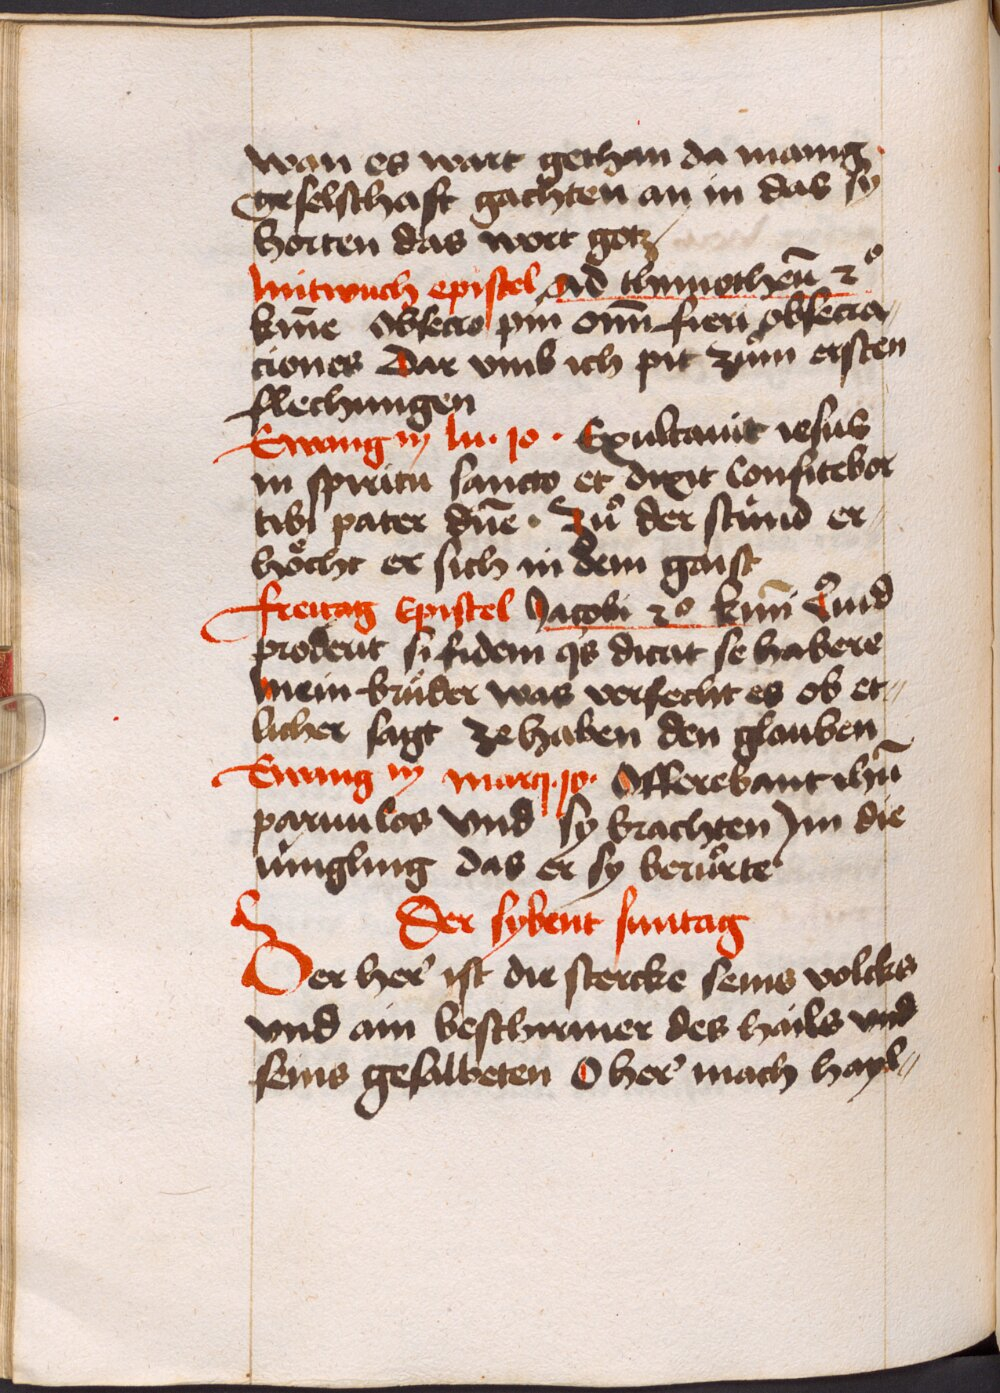 wan es wart gethan da manig
geselschaft gachten an in das sy
horten das wort gotz
Mitwuch epistel Ad thimotheū 2º
kīne Obsecro pm om̄ fieri obsecra„
ciones Dar vmb ich pit zům ersten
flechungen
Ewangȳ lu · 10 · Exultauit iesus
in spiritu sancto et dixit Confitebor
tibi pater dn̄e · Zů der stund er„
höcht er sich in dem gaist
freitag Epistel Jacobi 2º kīm Quid
proderit si fidem qs dicat se habere
Mein brůder was verfecht es ob et„
licher sagt ze haben den glauben
Ewangȳ marci · 10 · Offerebant ihū
paruulos Vnd sy brachten Im die
iungling das er sy berůrte
Der sybent suntag
Der her' ist die stercke seins volcks
vnd ain beschirmer des hails vnd
seins gesalbeten O her' mach hayl„